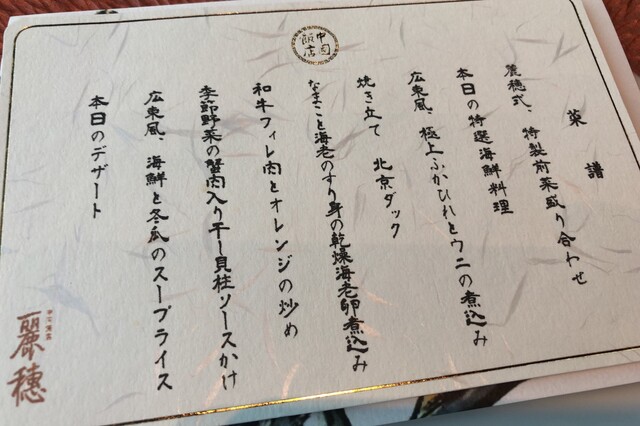 中国飯店
菜譜
麗穂式、特製前菜盛り合わせ
本日の特選海鮮料理
広東風、極上ふかひれとウニの煮込み
焼き立て 北京ダック
なまこと海老のすり身の乾燥海老卵煮込み
和牛フィレ肉とオレンジの炒め
季節野菜の蟹肉入り干し貝柱ソースかけ
広東風、海鮮と冬瓜のスープライス
本日のデザート
麗穂